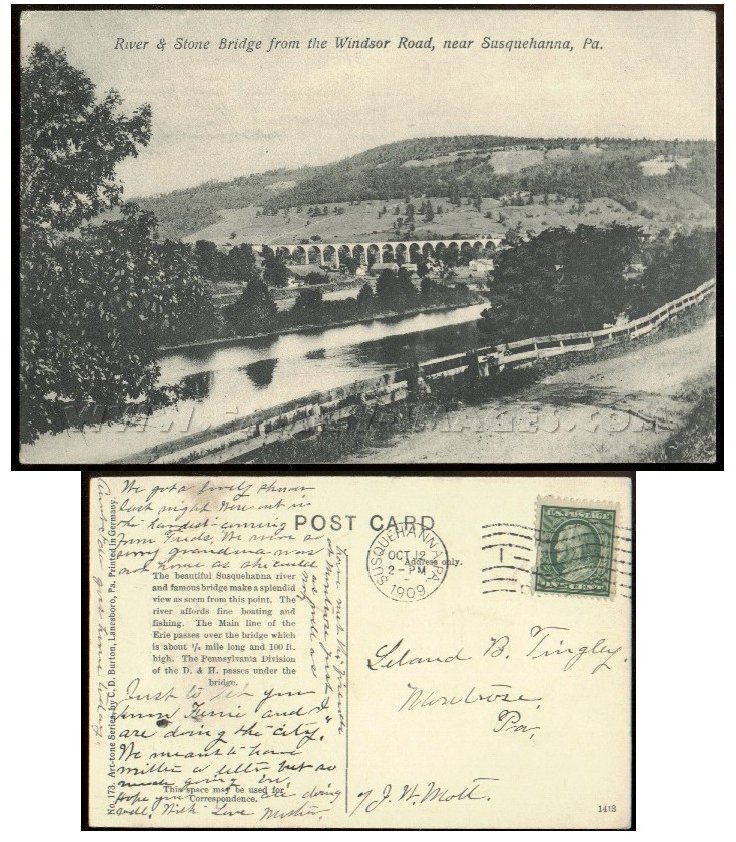 River & Stone Bridge from the Windsor Road, near Susquehanna, Pa.
We got a lovely
last night. Were out in
the
from Freds. We were so
sorry grandma was
not home as she could
POST CARD
Address only.
SUSQUEHANNA, PA.
OCT 12
2-PM
1909
U.S. POSTAGE
ONE CENT
The beautiful Susquehanna river
and famous bridge make a splendid
view as seem from this point. The
river affords fine boating and
fishing. The Main line of the
Erie passes over the bridge which
is about ¼ mile long and 100 ft.
high. The Pennsylvania Division
of the D. & H. passes under the
bridge.
Just to let you
know and I
are doing the city."
We meant to have
written a letter but so
much going on.
Hope you are doing
well. With Love Mother.
This space may be used for
Correspondence.
No. 173. Art-tone Series, by C. D. Burton, Lanesboro, Pa. Printed in Germany.
Leland B. Tingley.
Montrose,
Pa.
J. W. Mott.
1418